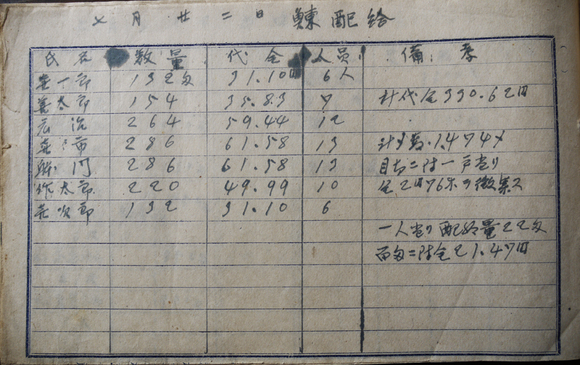 七月廿二日 鰊配給
氏名 数量 代金 人員 備考
一郎 132匁 31.10円 6人
太郎 154 35.83 7 計代金330.62円
治 264 59.44 12
市 286 61.58 13 1.474
286 61.58 13 一戸当り
作太郎 220 49.99 10 金2円76 徴集ス
次郎 132 31.10 6
一人当り配給量22匁
百匁ニ付金21.47円